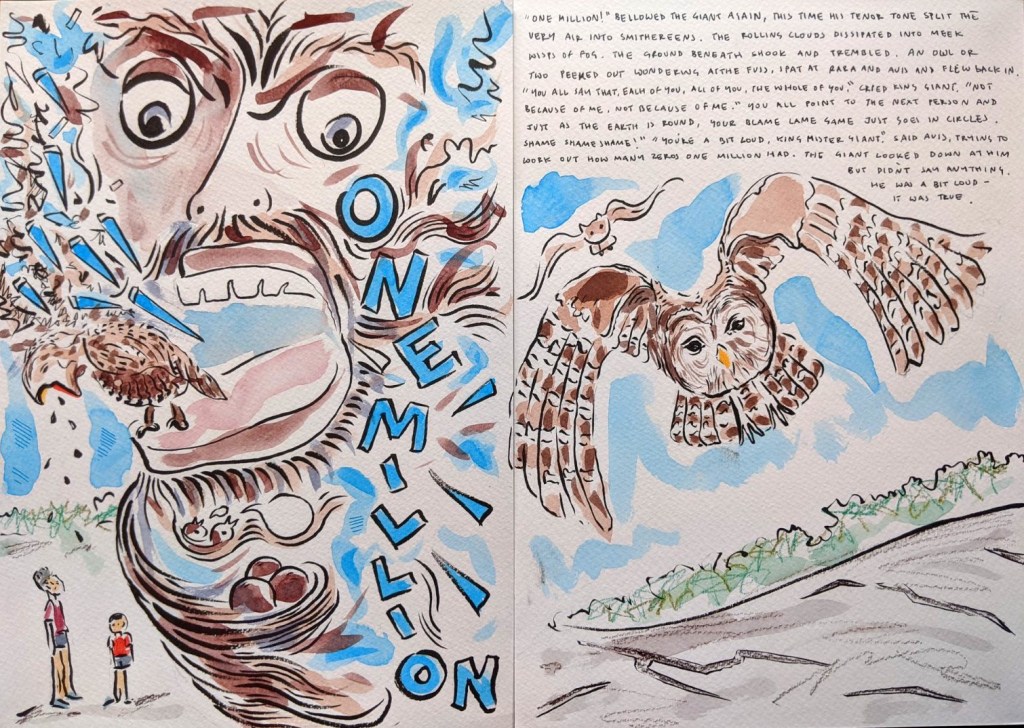 ONE MILLION
"ONE MILLION!" BELLOWED THE GIANT AGAIN, THIS TIME HIS TENOR TONE SPLIT THE
VERY AIR INTO SMITHEREENS. THE ROLLING CLOUDS DISSIPATED INTO MEEK
WISPS OF FOG. THE GROUND BENEATH SHOOK AND TREMBLED. AN OWL OR
TWO PEEPED OUT WONDERING AT THE FUSS, SPAT AT RARA AND AUIS AND FLEW BACK IN.
"YOU ALL SAY THAT, EACH OF YOU, ALL OF YOU, THE WHOLE OF YOU." CRIED KING GIANT, "NOT
BECAUSE OF ME. NOT BECAUSE OF ME." YOU ALL POINT TO THE NEXT PERSON AND
JUST AS THE EARTH IS ROUND, YOUR BLAME LAME GAME JUST GOES IN CIRCLES.
SHAME SHAME SHAME!" "YOU'RE A BIT LOUD, KING MISTER GIANT." SAID AUIS, TRYING TO
WORK OUT HOW MANY ZEROS ONE MILLION HAD. THE GIANT LOOKED DOWN AT HIM
BUT DIDN'T SAY ANYTHING.
HE WAS A BIT LOUD -
IT WAS TRUE.